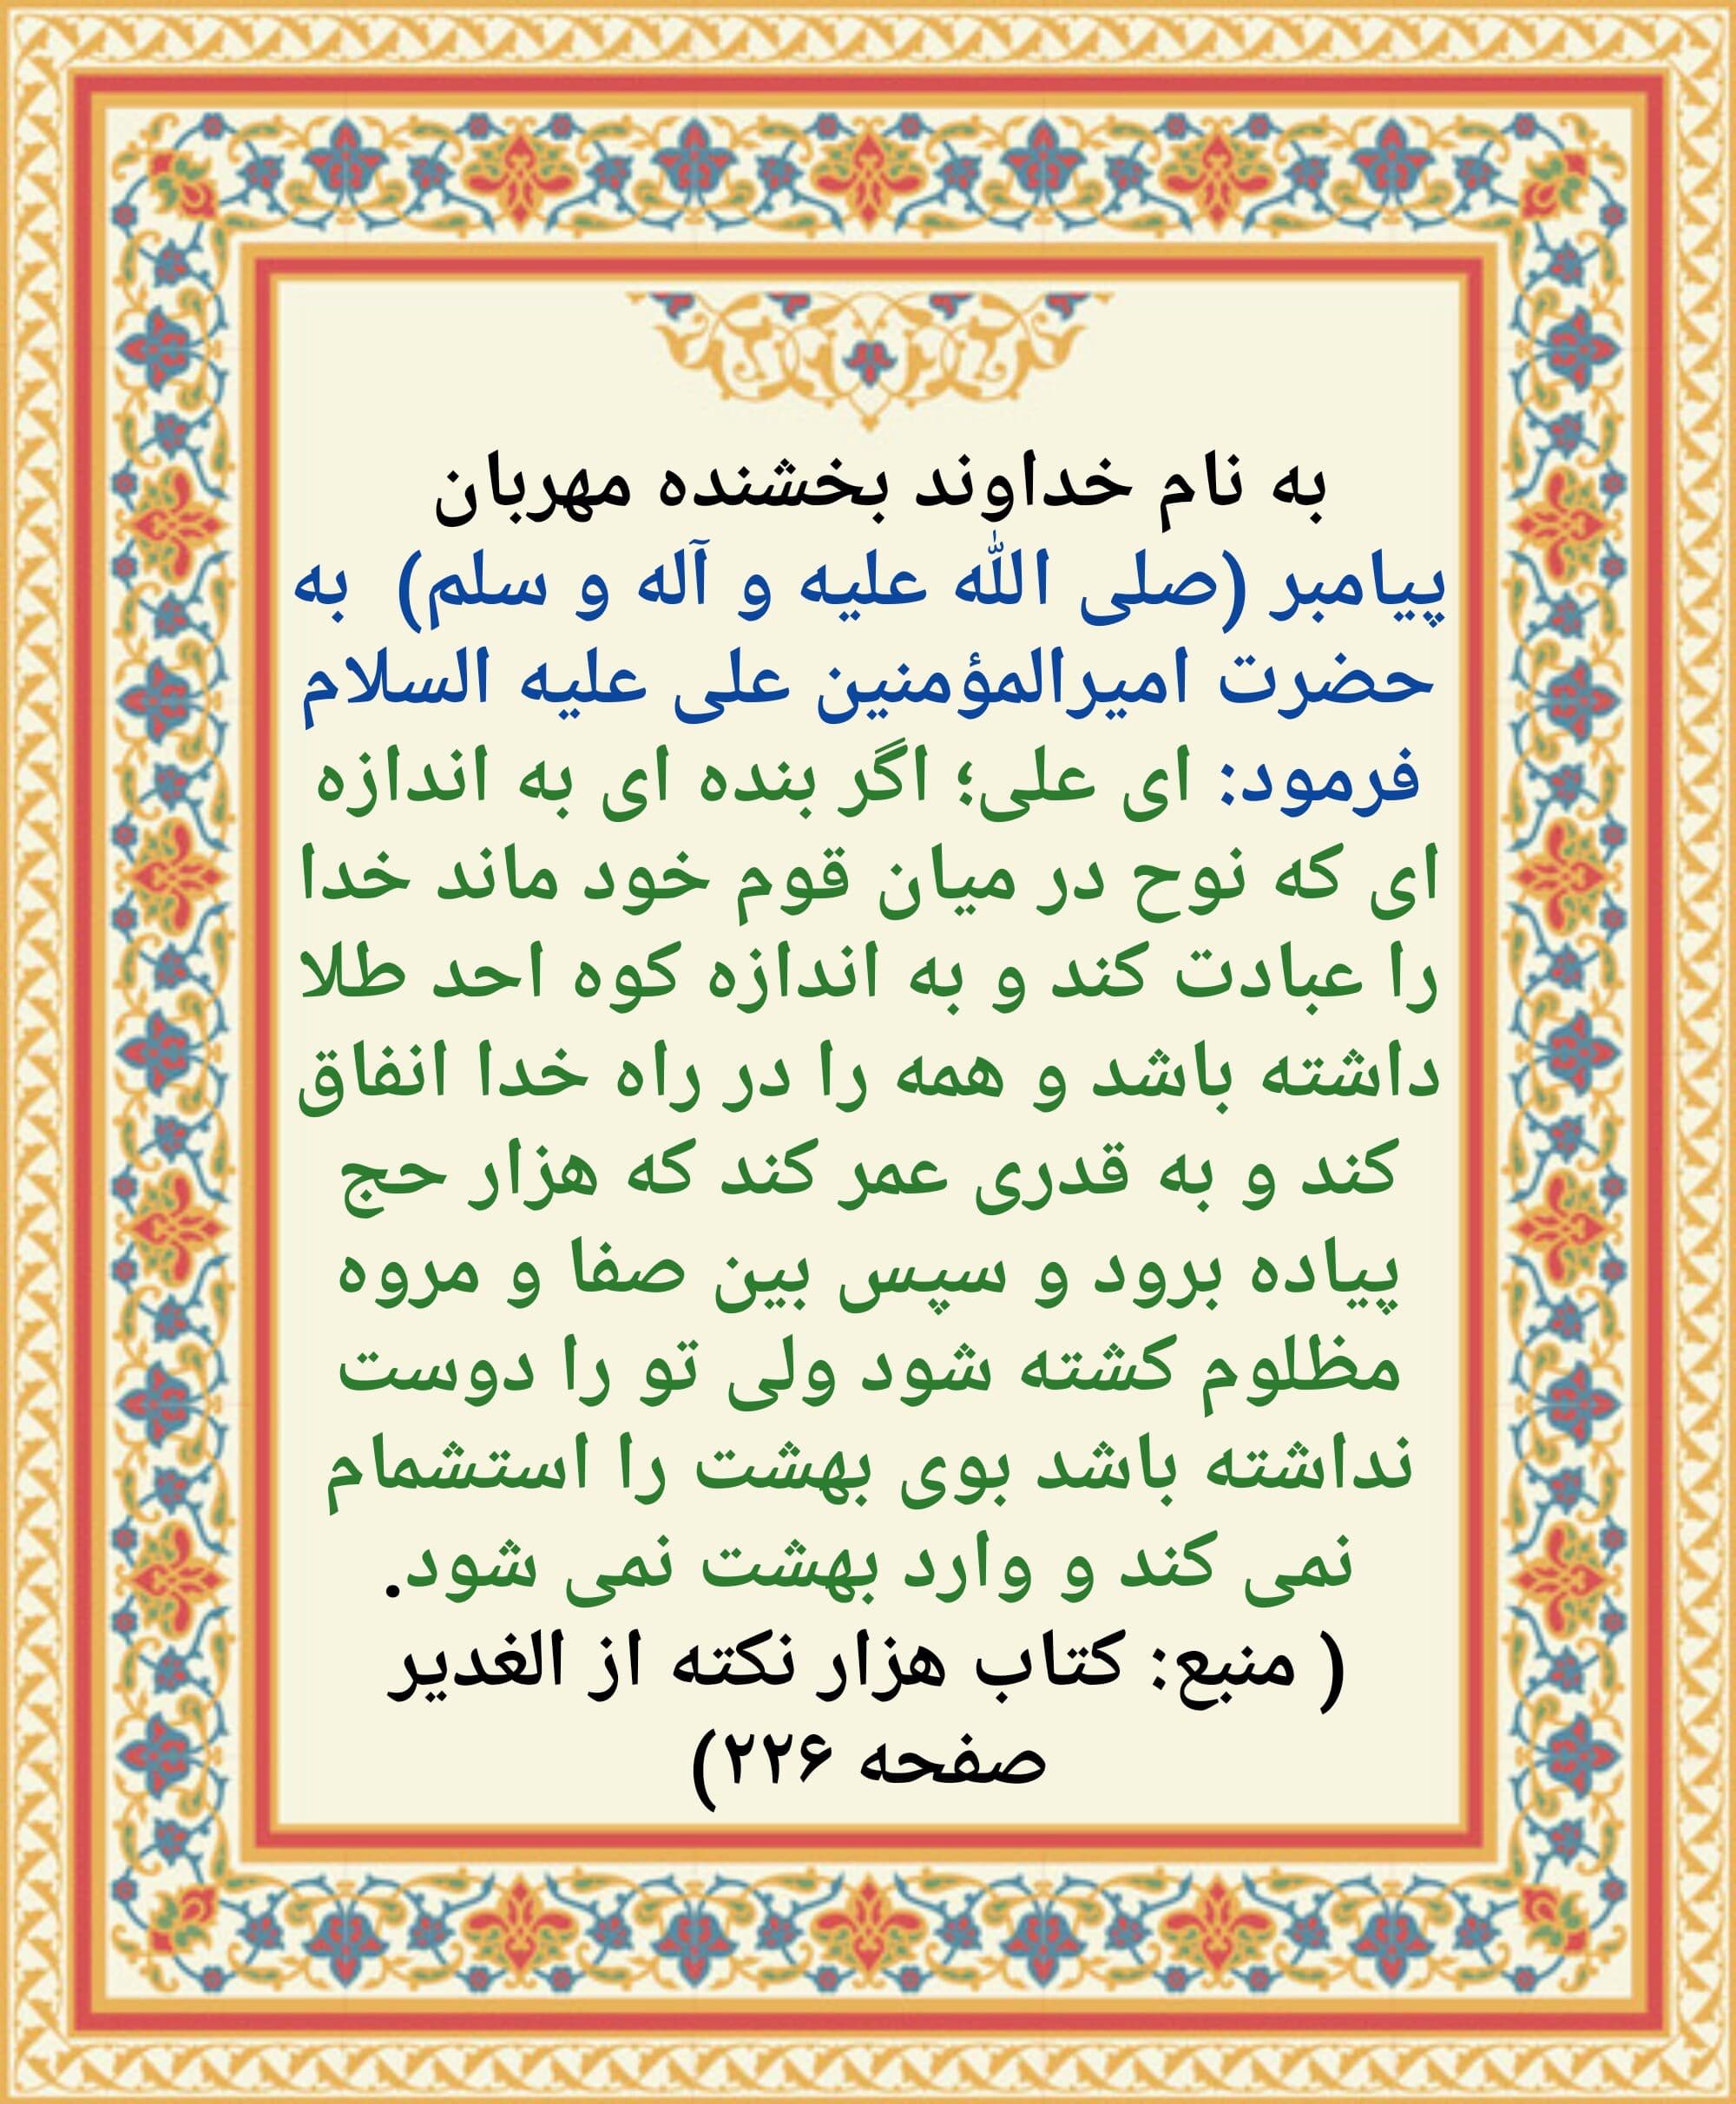 به نام خداوند بخشنده مهربان
پیامبر (صلی الله علیه و آله و سلم) به
حضرت امیرالمؤمنین علی علیه السلام
فرمود: ای علی؛ اگر بنده ای به اندازه
ای که نوح در میان قوم خود ماند خدا
را عبادت کند و به اندازه کوه احد طلا
داشته باشد و همه را در راه خدا انفاق
کند و به قدری عمر کند که هزار حج
پیاده برود و سپس بین صفا و مروه
مظلوم کشته شود ولی تو را دوست
نداشته باشد بوی بهشت را استشمام
نمی کند و وارد بهشت نمی شود.
( منبع: کتاب هزار نکته از الغدیر
صفحه ۲۲۶)